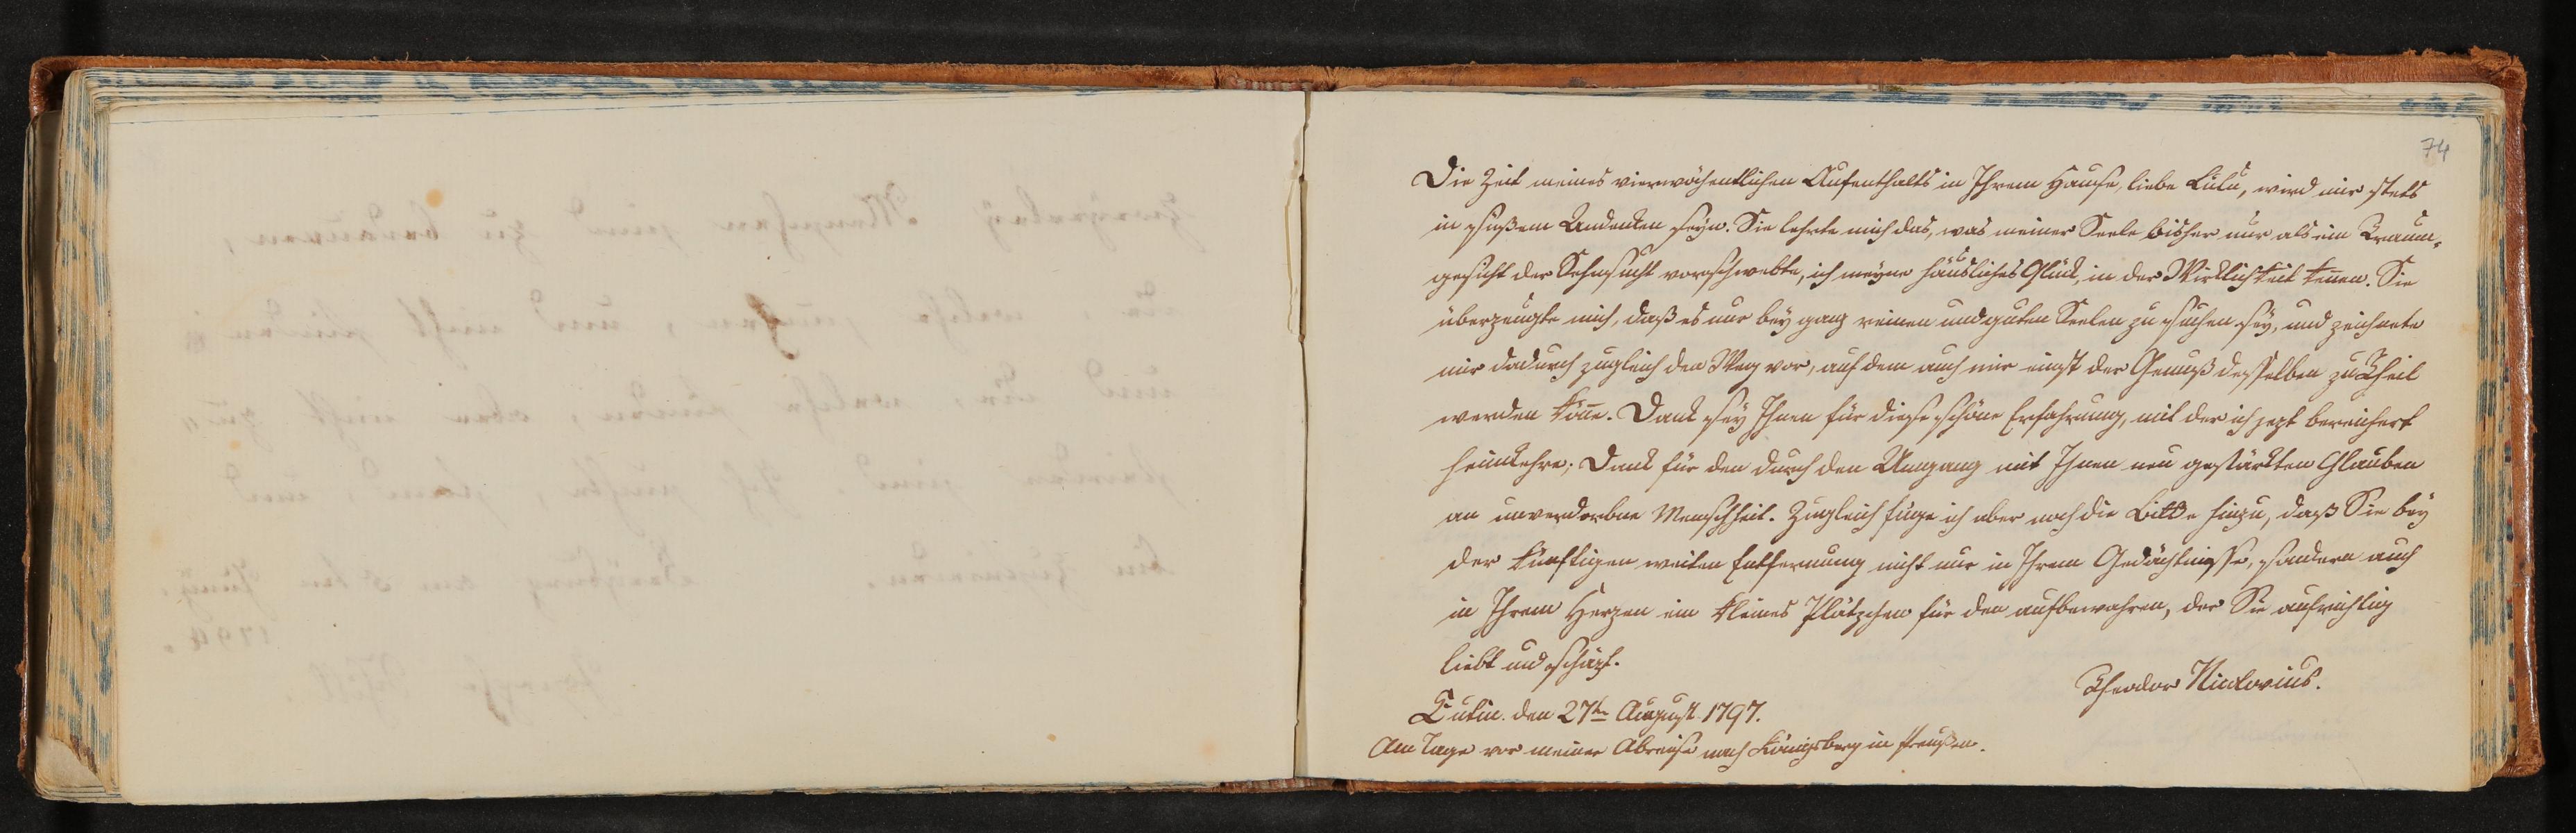 74
Die Zeit meines vierwöchentlichen Aufenthalts in Ihrem Hause, liebe Lulu, wird mir stets
in süßem Andenken seyn. Sie lehrte mich das, was meiner Seele bisher nur als ein Traum-
gesicht der Sehnsucht vorschwebte, ich meyne häusliches Glück, in der Wirklichkeit kennen. Sie
überzeugte mich, daß es nur bey ganz reinen und guten Seelen zu suchen sey, und zeichnete
mir dadurch zugleich den Weg vor, auf dem auch mir einst der Genuß desselben zu Theil
werden könne. Dank sey Ihnen für diese schöne Erfahrung, mit der ich jezt bereichert
heimkehre; Dank für den durch den Umgang mit Ihnen neu gestärkten Glauben
an unverdorbne Menschheit. Zugleich füge ich aber noch die Bitte hinzu, daß Sie bey
der künftigen weiten Entfernung nicht nur in Ihrem Gedächtnisse, sondern auch
in Ihrem Herzen ein kleines Plätzchen für den aufbewahren, der Sie aufrichtig
liebt und schäzt.
Theodor Nicolovius.
Eutin. den 27ten August 1797.
Am Tage vor meiner Abreise nach Königsberg in Preußen.